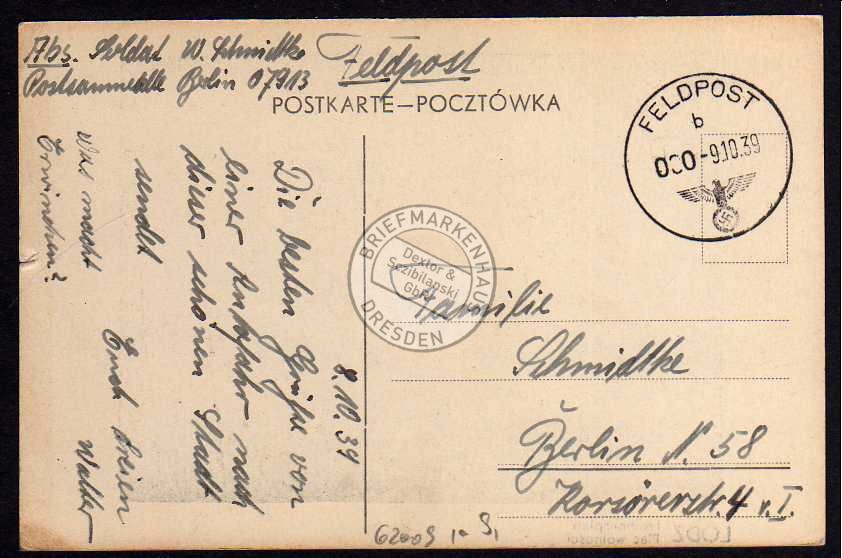 Abs. Soldat W. Schmidtke
Postsammelstelle Berlin 07913
Feldpost
POSTKARTE–POCZTÓWKA
FELDPOST
b
000 -9.10.39
8.10.39
Die besten Grüße von
einer nach
dieser schönen Stadt
sendet
Euch dreien
Walter
Was macht
Erwinchen?
Familie
Schmidtke
Berlin N. 58
Korsörerstr. 4 v. I.
62009
BRIEFMARKENHAUS
Dextor &
Sczibilanski
GbR
DRESDEN
LODZ Plac wolności